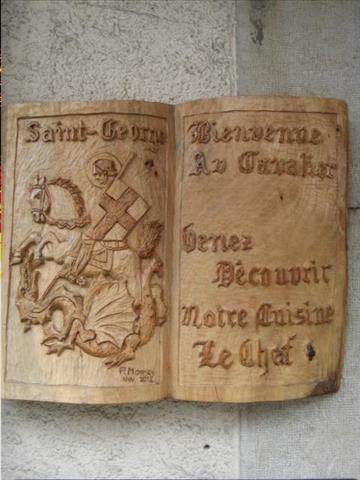 Saint-George
Bienvenue
Au Cavalier
Venez
Découvrir
Notre Cuisine
Le Chef